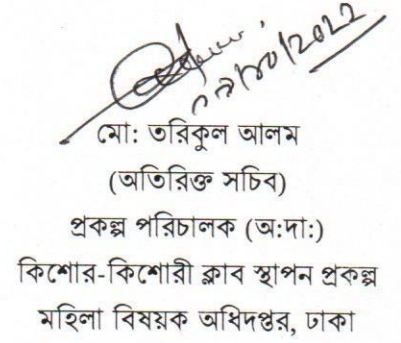 মো: তরিকুল আলম
(অতিরিক্ত সচিব)
প্রকল্প পরিচালক (অ:দা:)
কিশোর-কিশোরী ক্লাব স্থাপন প্রকল্প
মহিলা বিষয়ক অধিদপ্তর, ঢাকা